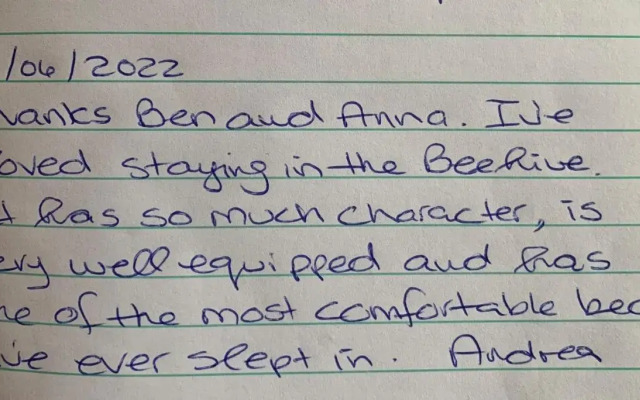 /06/2022
hanks Ben and Anna. I've
oved staying in the Beehive.
t has so much character, is
ery well equipped and has
ne of the most comfortable bed
've ever slept in. Andrea